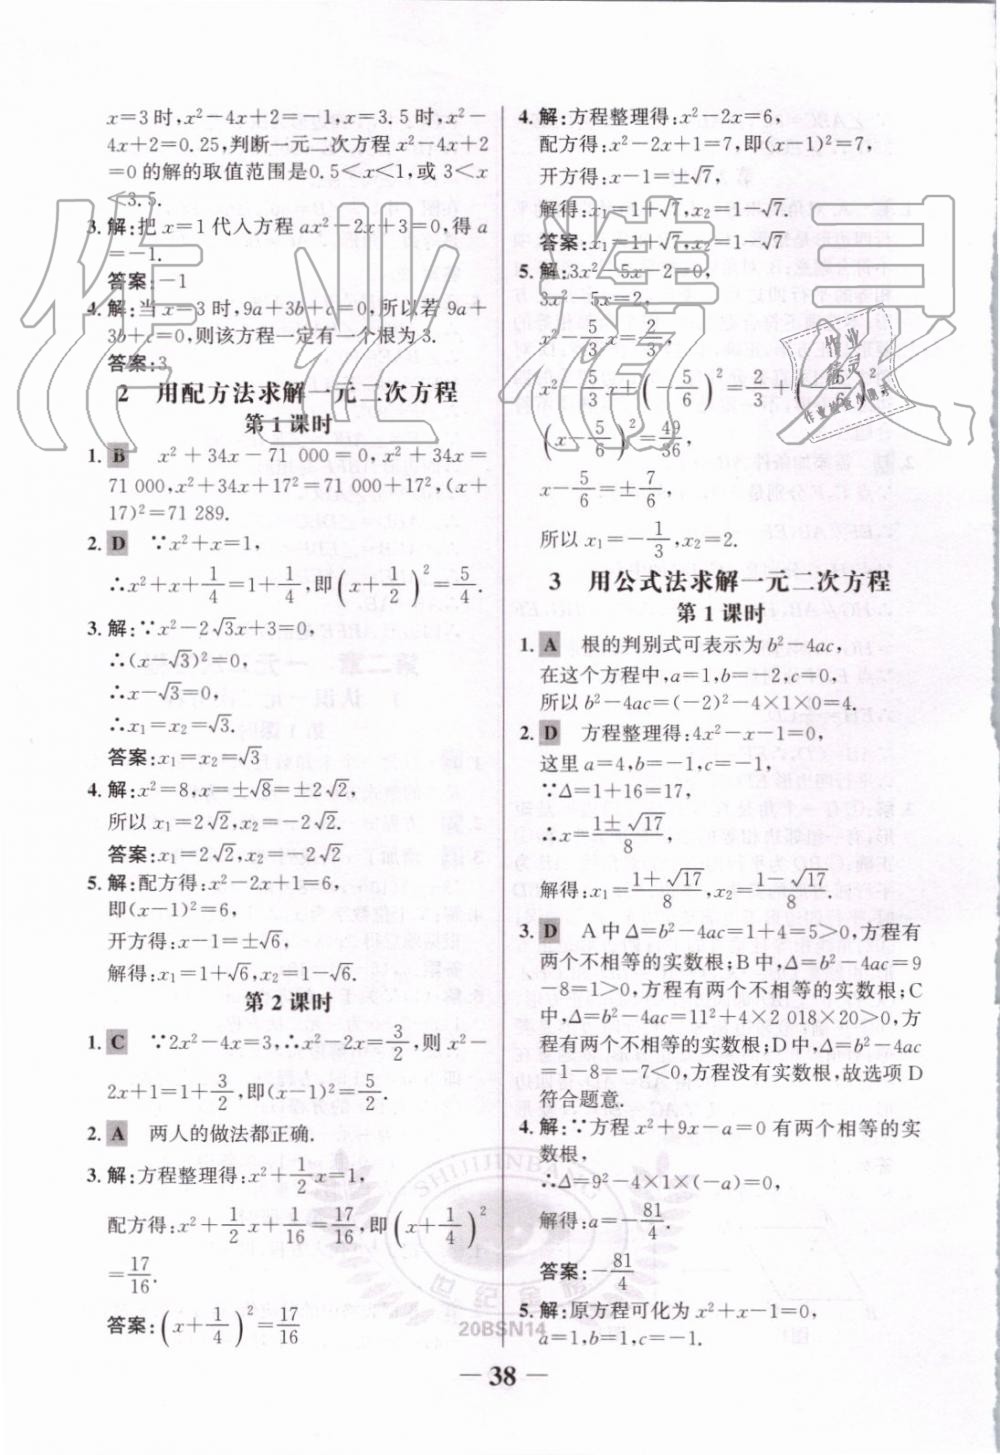 x=3时,x²-4x+2=-1,x=3.5时,x²-
4x+2=0.25,判断一元二次方程 x²-4x+2
=0 的解的取值范围是0.5<x<1,或 3<x
<3.5.
3. 解:把 x=1代入方程 ax²-2x+3=0,得 a
=-1.
答案:-1
4. 解:当 x=3 时,9a+3b+c=0,所以若 9a+
3b+c=0,则该方程一定有一个根为 3.
答案:3
2 用配方法求解一元二次方程
第 1 课时
1. B x²+34x-71 000=0,x²+34x=
71 000,x²+34x+17²=71 000+17²,(x+
17)²=71 289.
2. D ∵x²+x=1,
∴x²+x+1/4=1+1/4,即(x+1/2)²=5/4.
3. 解:∵x²-2√3x+3=0,
∴(x-√3)²=0,
∴x-√3=0,
∴x₁=x₂=√3.
答案:x₁=x₂=√3
4. 解:x²=8,x=±√8=±2√2,
所以 x₁=2√2,x₂=-2√2.
答案:x₁=2√2,x₂=-2√2
5. 解:配方得:x²-2x+1=6,
即(x-1)²=6,
开方得:x-1=±√6,
解得:x₁=1+√6,x₂=1-√6.
第 2 课时
1. C ∵2x²-4x=3,∴x²-2x=3/2,则 x²-
2x+1=1+3/2,即(x-1)²=5/2.
2. A 两人的做法都正确.
3. 解:方程整理得:x²+1/2x=1,
配方得:x²+1/2x+1/16=17/16,即(x+1/4)²
=17/16.
答案:(x+1/4)²=17/16
4. 解:方程整理得:x²-2x=6,
配方得:x²-2x+1=7,即(x-1)²=7,
开方得:x-1=±√7,
解得:x₁=1+√7,x₂=1-√7.
答案:x₁=1+√7,x₂=1-√7
5. 解:3x²-5x-2=0,
3x²-5x=2,
x²-5/3x=2/3,
x²-5/3x+(-5/6)²=2/3+(-5/6)²
(x-5/6)²=49/36
x-5/6=±7/6,
所以 x₁=-1/3,x₂=2.
3 用公式法求解一元二次方程
第 1 课时
1. A 根的判别式可表示为 b²-4ac,
在这个方程中,a=1,b=-2,c=0,
所以 b²-4ac=(-2)²-4×1×0=4.
2. D 方程整理得:4x²-x-1=0,
这里 a=4,b=-1,c=-1,
∵Δ=1+16=17,
∴x=(1±√17)/8,
解得:x₁=(1+√17)/8,x₂=(1-√17)/8.
3. D A中 Δ=b²-4ac=1+4=5>0,方程有
两个不相等的实数根;B中,Δ=b²-4ac=9
-8=1>0,方程有两个不相等的实数根;C
中,Δ=b²-4ac=11²+4×2 018×20>0,方
程有两个不相等的实数根;D中,Δ=b²-4ac
=1-8=-7<0,方程没有实数根,故选项 D
符合题意.
4. 解:∵方程 x²+9x-a=0 有两个相等的实
数根,
∴Δ=9²-4×1×(-a)=0,
解得:a=-81/4.
答案:-81/4
5. 解:原方程可化为 x²+x-1=0,
a=1,b=1,c=-1.
SHIJIJINBANG
世纪金榜
20BSN14
— 38 —